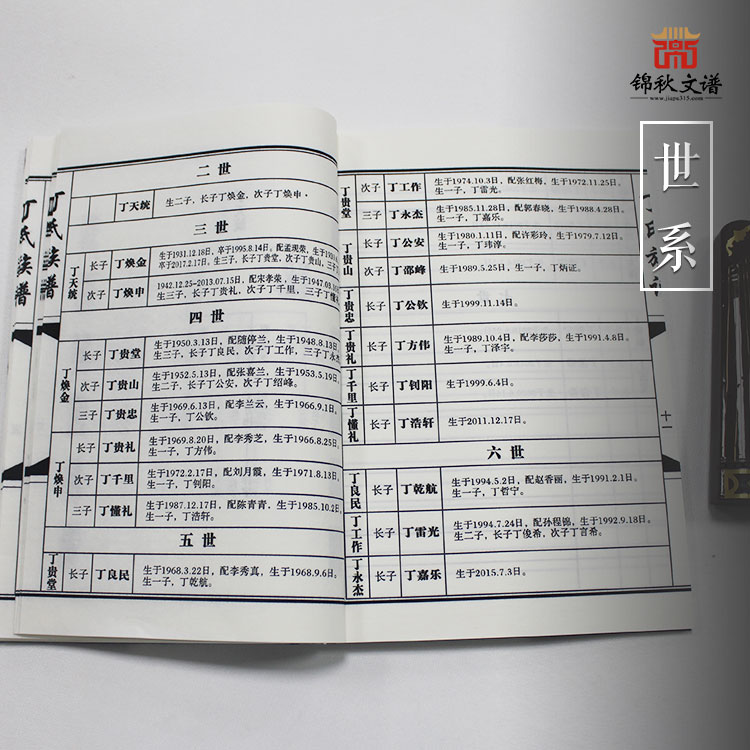 锦秋文谱
www.jiapu315.com
世系
丁氏族谱
丁氏族谱
二世
丁天统
生二子，长子丁焕金，次子丁焕申。
三世
丁天统
长子 丁焕金
生于1931.12.18日，卒于1995.8.14日。配孟现荣，
卒于2017.2.17日。生三子，长子丁贵堂，次子丁贵山，三子
次子 丁焕申
1942.12.25-2013.07.15日，配宋孝荣，生于1947.03.
生三子，长子丁贵礼，次子丁千里，三子丁懂
四世
丁焕金
长子 丁贵堂
生于1950.3.13日，配随停兰，生于1948.8.13日。
生三子，长子丁良民，次子丁工作，三子丁永杰
次子 丁贵山
生于1952.5.13日，配张喜兰，生于1953.5.19日。
生二子，长子丁公安，次子丁绍峰。
三子 丁贵忠
生于1969.6.13日，配李兰云，生于1966.9.1日。
生一子，丁公钦。
丁焕申
长子 丁贵礼
生于1969.8.20日，配李秀芝，生于1966.8.25日。
生一子，丁方伟。
次子 丁千里
生于1972.2.17日，配刘月霞，生于1971.8.13日。
生一子，丁钊阳。
三子 丁懂礼
生于1987.12.17日，配陈青青，生于1985.10.2日
生一子，丁浩轩。
五世
丁贵堂
长子 丁良民
生于1968.3.22日，配李秀真，生于1968.9.6日。
生一子，丁乾航。
丁贵堂
次子 丁工作
生于1974.10.3日，配张红梅，生于1972.11.25日。
生一子，丁雷光。
三子 丁永杰
生于1985.11.28日，配郭春晓，生于1988.4.28日。
生一子，丁嘉乐。
丁贵山
长子 丁公安
生于1980.1.11日，配许彩玲，生于1979.7.12日。
生一子，丁玮淳。
次子 丁邵峰
生于1989.5.25日，生一子，丁炳证。
丁贵忠
长子 丁公钦
生于1999.11.14日。
丁贵礼
长子 丁方伟
生于1989.10.4日，配李莎莎，生于1991.4.8日。
生一子，丁泽宇。
丁千里
长子 丁钊阳
生于1999.6.4日。
丁懂礼
长子 丁浩轩
生于2011.12.17日。
六世
丁良民
长子 丁乾航
生于1994.5.2日，配赵香丽，生于1991.2.1日。
生一子，丁哲宁。
丁工作
长子 丁雷光
生于1994.7.24日，配孙程锦，生于1992.9.18日。
生二子，长子丁俊希，次子丁言希。
丁永杰
长子 丁嘉乐
生于2015.7.3日。
十一